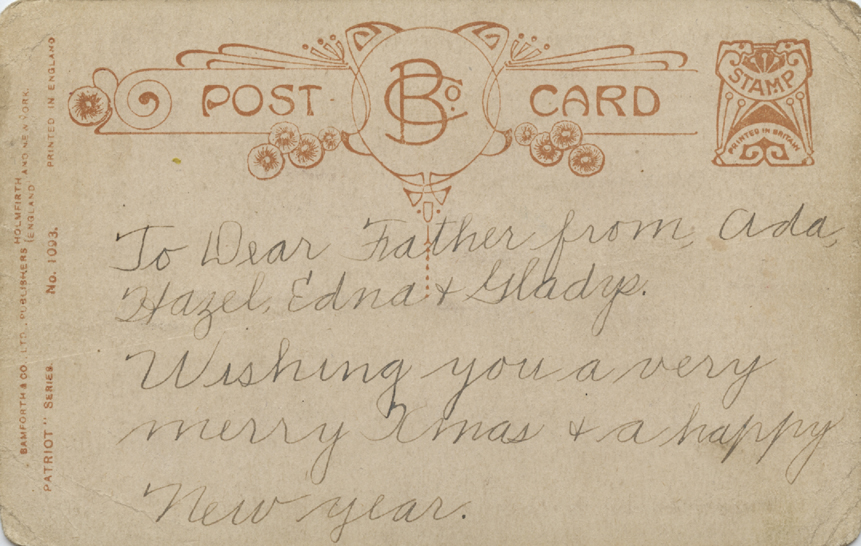 POST CARD
BCo.
STAMP
PRINTED IN BRITAIN
To Dear Father from, Ada,
Hazel, Edna & Gladys.
Wishing you a very
merry Xmas & a happy
New year.
BAMFORTH & CO., LTD., PUBLISHERS HOLMFIRTH (ENGLAND) AND NEW YORK.
PATRIOT" SERIES. No. 1093. PRINTED IN ENGLAND